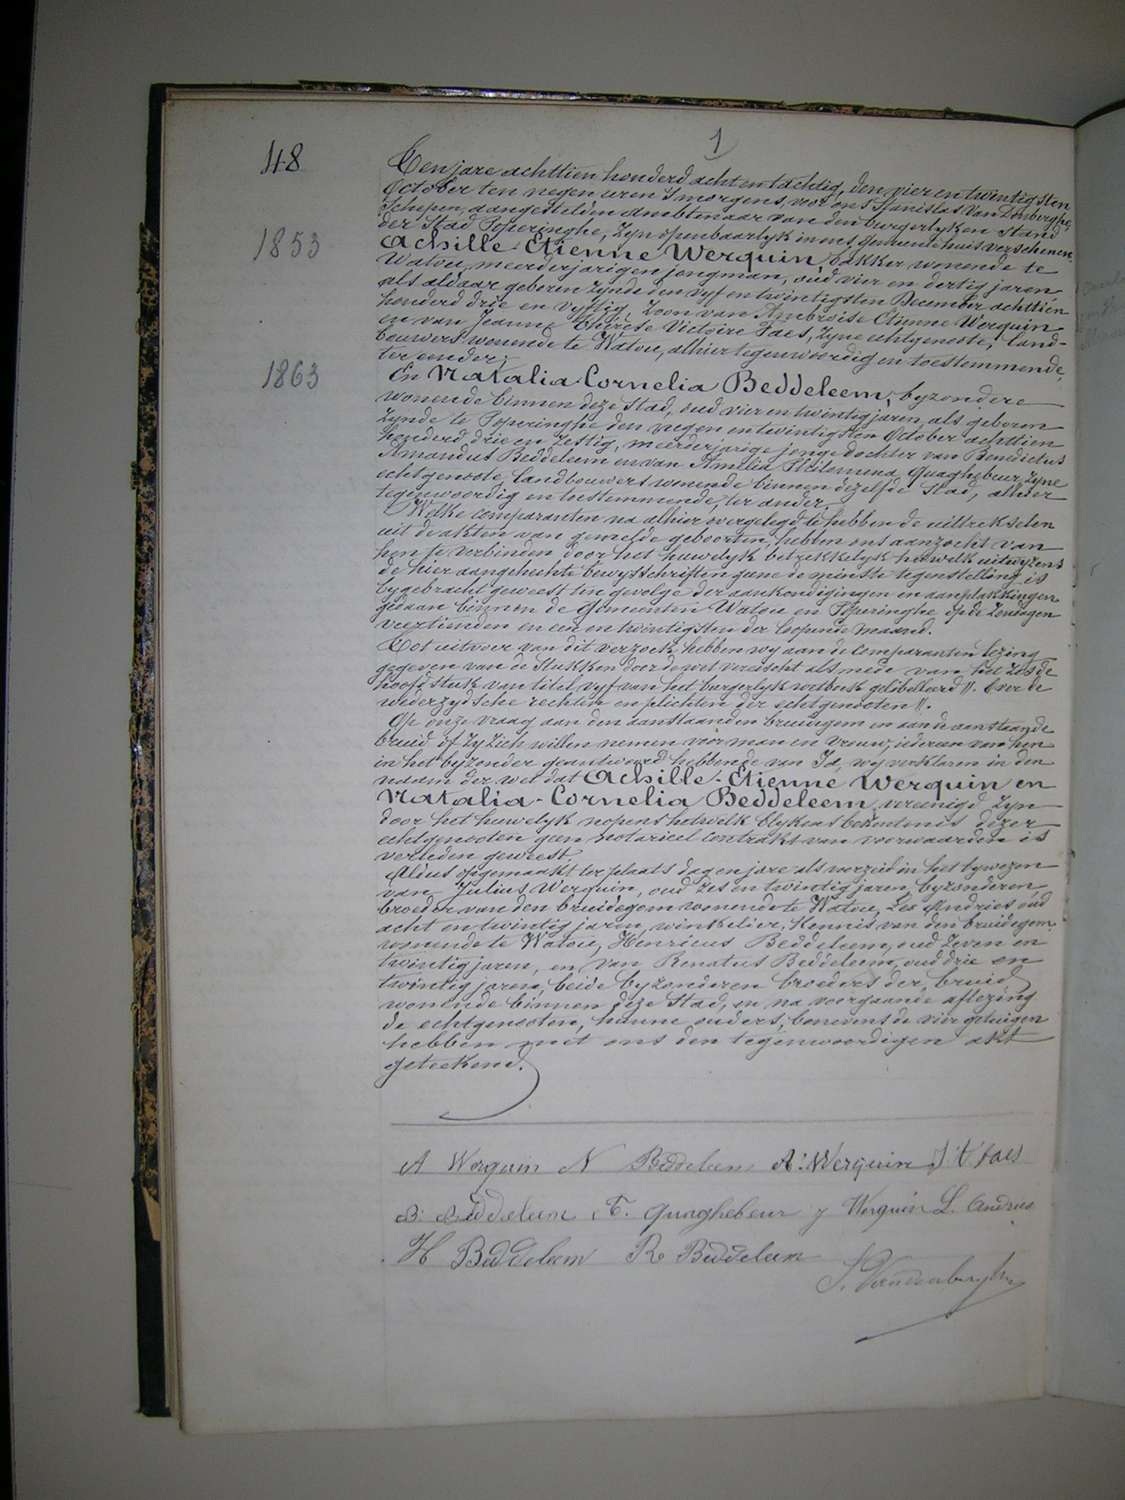 1
48
Ten jare achttien honderd acht en tachtig, den vier en twintigsten
October ten negen uren 's morgens, voor ons Stanislas Van Denberghe,
Schepen, aangestelden ambtenaar van den burgerlyken stand
der Stad Poperinghe, zyn openbaarlyk in ons gemeentehuis verschenen
1853
Achille-Etienne Werquin, bakker wonende te
Watou, meerderjarigen jongman, oud vier en dertig jaren
als aldaar geboren zynde den vyf en twintigsten December achttien
honderd drie en vyftig, Zoon van Ambroise Etienne Werquin
en van Jeanne Thérèse Victoire Faes, zyne echtgenoote, land-
bouwers wonende te Watou, alhier tegenwoordig en toestemmende,
ter eender;
1863
En Natalia-Cornelia Beddeleem, byzondere
wonende binnen deze stad, oud vier en twintig jaren, als geboren
zynde te Poperinghe den negen en twintigsten October achttien
honderd drie en zestig, meerderjarige jonge dochter van Benedictus
Amandus Beddeleem en van Amelia Philomena Quaghebeur zyne
echtgenoote, landbouwers wonende binnen dezelfde Stad, alhier
tegenwoordig en toestemmende, ter ander,
Welke comparanten na alhier overgelegd te hebben de uittrekselen
uit de akten van gemelde geboorten, hebben ons aanzocht van
hen te verbinden door het huwelyk betrekkelyk hetwelk uitwyzens
de hier aangehechte bewysschriften geene de minste tegenstelling is
bygebracht geweest ten gevolge der aankondigingen en aanplakkingen
gedaan binnen de gemeenten Watou en Poperinghe op de Zondagen
veertienden en een en twintigsten der loopende maand.
Tot uitvoer van dit verzoek hebben wy aan de comparanten lezing
gegeven van de stukken door de wet vereischt alsmede van het zesde
hoofdstuk van titel vyf van het burgerlyk wetboek gelibelleerd ". Over de
wederzydsche rechten en plichten der echtgenooten ".
Op onze vraag aan den aanstaanden bruidegom en aan de aanstaande
bruid of zy zich willen nemen voor man en vrouw, iedereen van hen
in het byzonder geantwoord hebbende van Ja, wy verklaren in den
naam der wet dat Achille-Etienne Werquin en
Natalia-Cornelia Beddeleem vereenigd zyn
door het huwelyk nopens hetwelk blykens bekentenis dezer
echtgenooten geen notarieel contrakt van voorwaarden is
verleden geweest.
Aldus opgemaakt ter plaats dag en jare als verzeid in het bywezen
van Julius Werquin, oud zes en twintig jaren, byzonderen
broeder van den bruidegom wonende te Watou, Leo Andries oud
acht en twintig jaren, winkelier, kennis van den bruidegom,
wonende te Watou, Henricus Beddeleem, oud zeven en
twintig jaren, en van Renatus Beddeleem, oud drie en
twintig jaren, beide byzonderen broeders der bruid
wonende binnen deze Stad, en na voorgaande aflezing
de echtgenooten, hunne ouders, benevens de vier getuigen
hebben met ons den tegenwoordigen akt
geteekend.
A Werquin N Beddeleem A. Werquin J. T. Faes
B. Beddeleem F. Quaghebeur J Werquin L. Andries
H Beddeleem R Beddeleem
S. Vandenberghe